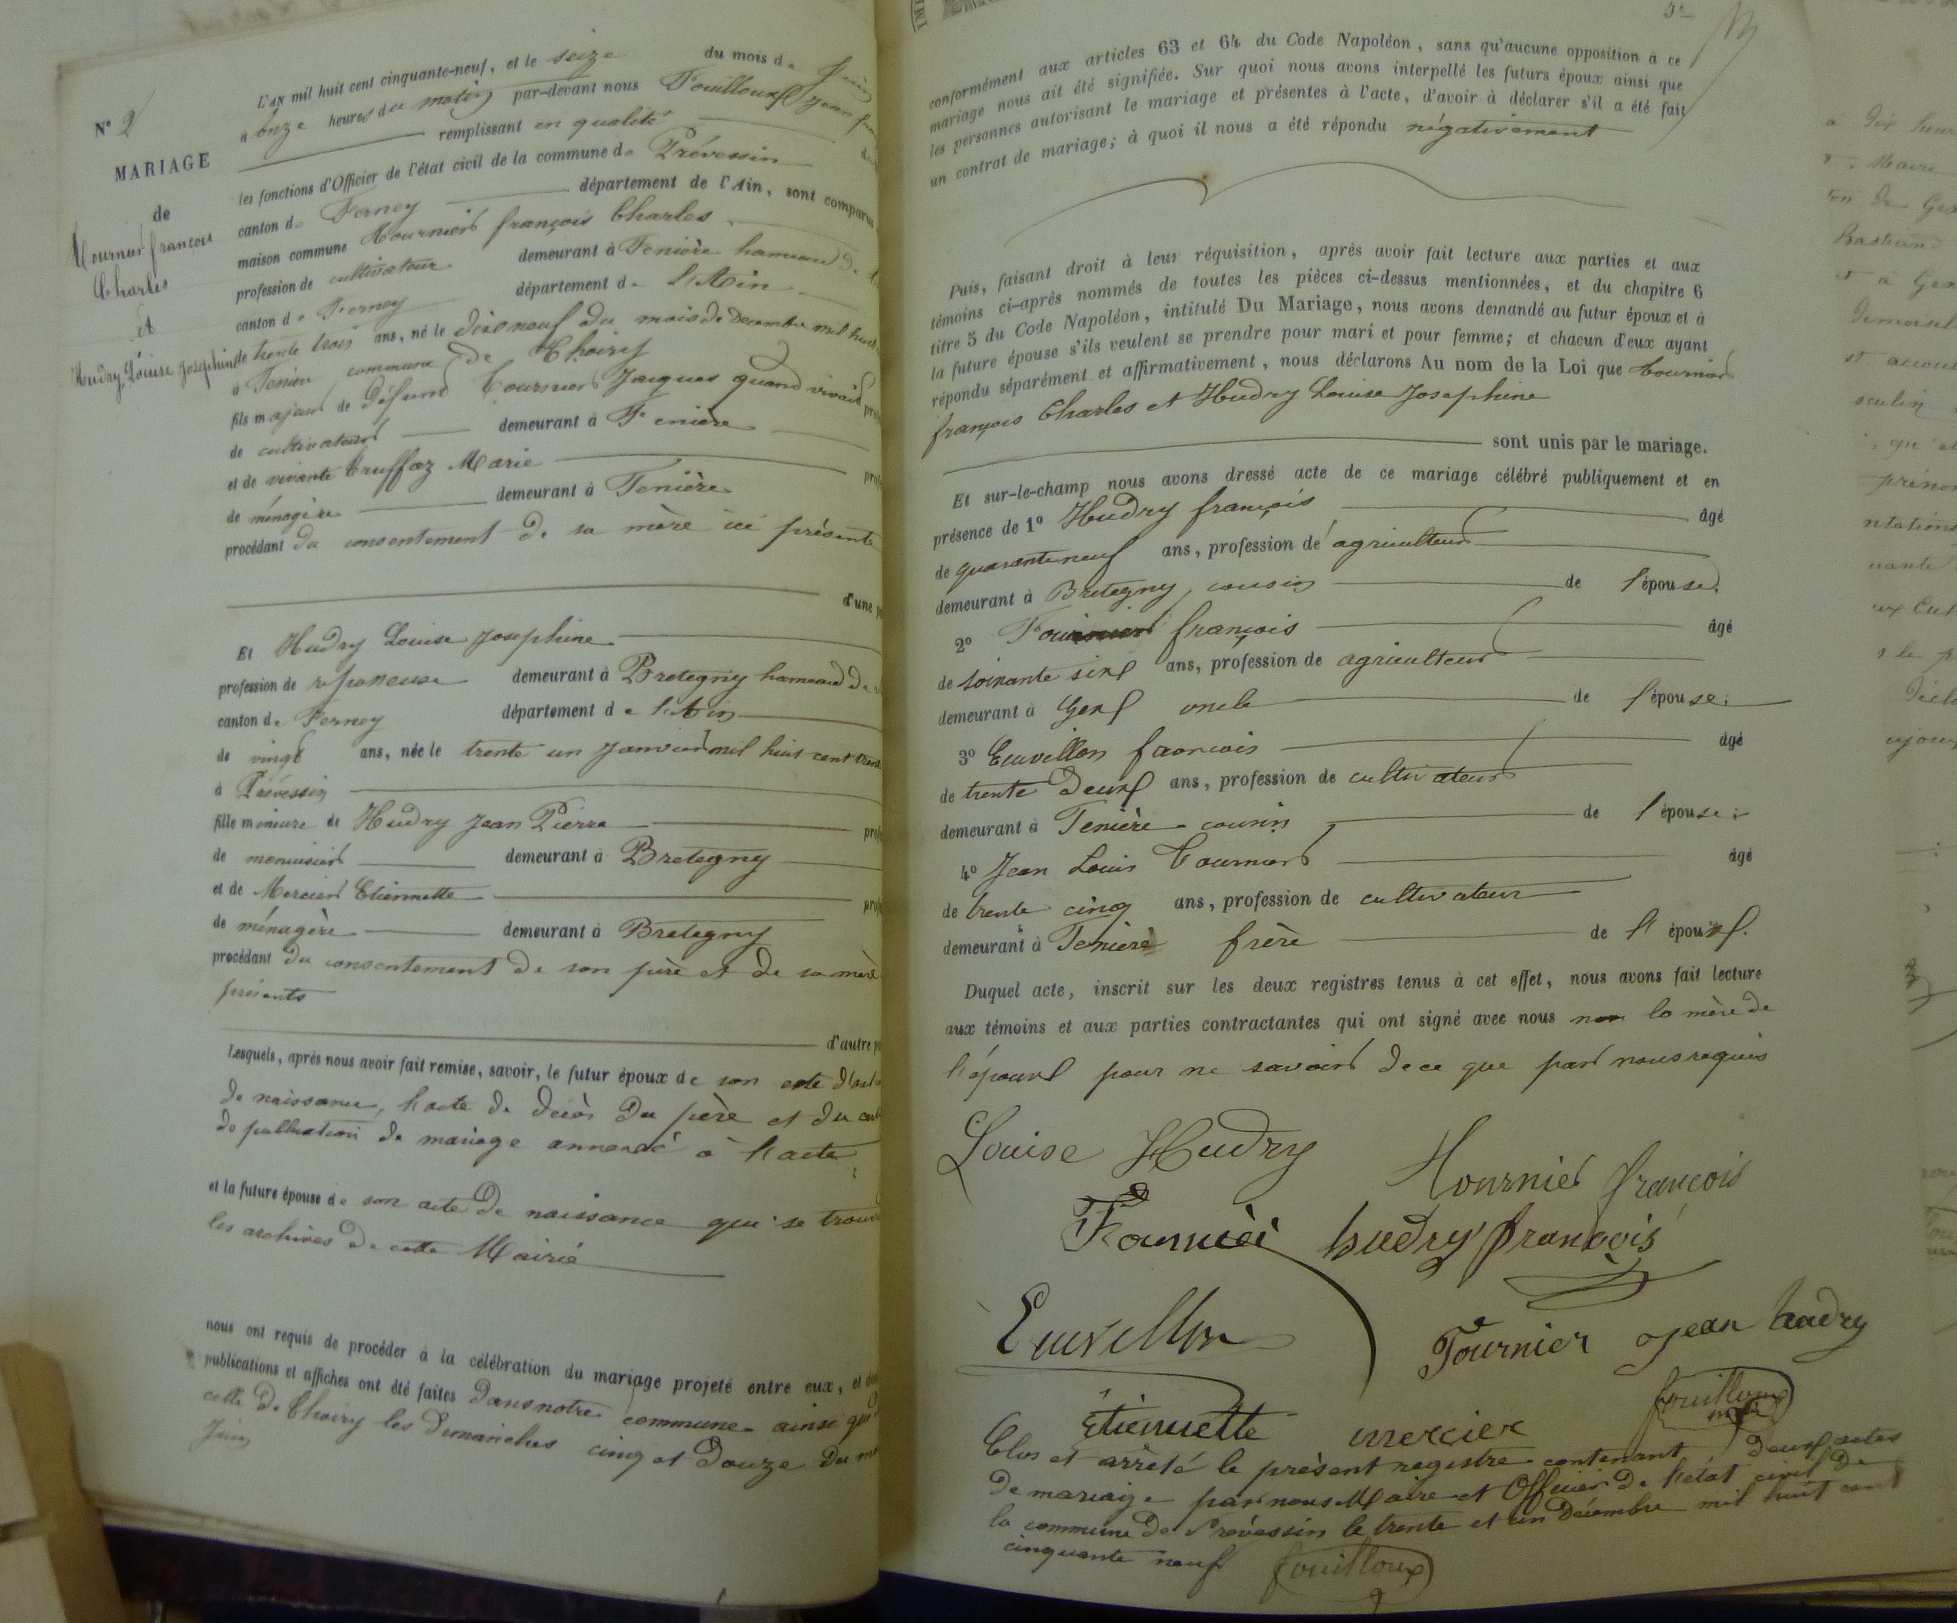 N° 2
MARIAGE
de
Tournier françois
Charles
et
Hudry Louise Josephine
L'AN mil huit cent cinquante-neuf, et le seize du mois de Juin
à onze heures du matin par-devant nous Fouilloux Jean
remplissant en qualité
les fonctions d'Officier de l'état civil de la commune de Prévessin
canton de Ferney département de l'Ain, sont comparus
maison commune Tournier françois Charles
profession de cultivateur demeurant à Fenière hameau de
canton de Ferney département de l'Ain
de trente trois ans, né le dix neuf du mois de Decembre mil huit
à Fenière commune de Thoiry
fils majeur de défunt Tournier Jacques quand vivait
de cultivateur demeurant à Fenière
et de vivante Truffaz Marie
de ménagère demeurant à Fenière
procédant du consentement de sa mère ici présente
d'une
Et Hudry Louise Josephine
profession de repasseuse demeurant à Bretegny hameau de
canton de Ferney département de l'Ain
de vingt ans, née le trente un Janvier mil huit cent
à Prévessin
fille mineure de Hudry Jean Pierre
de menuisier demeurant à Bretegny
et de Mercier Etiennette
de ménagère demeurant à Bretegny
procédant du consentement de son père et de sa mère
présents
d'autre
Lesquels, après nous avoir fait remise, savoir, le futur époux de son acte
de naissance, l'acte de décès du père et du
de publication de mariage annexé à l'acte
et la future épouse de son acte de naissance qui se trouve
les archives de cette Mairie
nous ont requis de procéder à la célébration du mariage projeté entre eux, et
publications et affiches ont été faites dans notre commune ainsi que
celle de Thoiry les dimanches cinq et douze du
Juin
conformément aux articles 63 et 64 du Code Napoléon, sans qu'aucune opposition à ce
mariage nous ait été signifiée. Sur quoi nous avons interpellé les futurs époux ainsi que
les personnes autorisant le mariage et présentes à l'acte, d'avoir à déclarer s'il a été fait
un contrat de mariage; à quoi il nous a été répondu négativement
Puis, faisant droit à leur réquisition, après avoir fait lecture aux parties et aux
témoins ci-après nommés de toutes les pièces ci-dessus mentionnées, et du chapitre 6
titre 5 du Code Napoléon, intitulé Du Mariage, nous avons demandé au futur époux et à
la future épouse s'ils veulent se prendre pour mari et pour femme; et chacun d'eux ayant
répondu séparément et affirmativement, nous déclarons Au nom de la Loi que Tournier
françois Charles et Hudry Louise Josephine
sont unis par le mariage.
Et sur-le-champ nous avons dressé acte de ce mariage célébré publiquement et en
présence de 1° Hudry françois âgé
de quarante neuf ans, profession de agriculteur
demeurant à Bretegny, cousin de l'épouse.
2° Fournier françois âgé
de soixante six ans, profession de agriculteur
demeurant à Gex oncle de l'épouse;
3° Euvillon francois âgé
de trente deux ans, profession de cultivateur
demeurant à Fenière cousin de l'épouse;
4° Jean Louis Tournier âgé
de trente cinq ans, profession de cultivateur
demeurant à Fenière frère de l'époux.
Duquel acte, inscrit sur les deux registres tenus à cet effet, nous avons fait lecture
aux témoins et aux parties contractantes qui ont signé avec nous non la mère de
l'époux pour ne savoir de ce que par nous requis
Louise Hudry Tournier françois
Fournier hudry françois
Euvillon Tournier jean hudry
Etiennette mercier fouilloux
Clos et arrêté le présent registre contenant deux actes
de mariage par nous Maire et Officier de l'état civil de
la commune de Prévessin le trente et un Décembre mil huit cent
cinquante neuf fouilloux